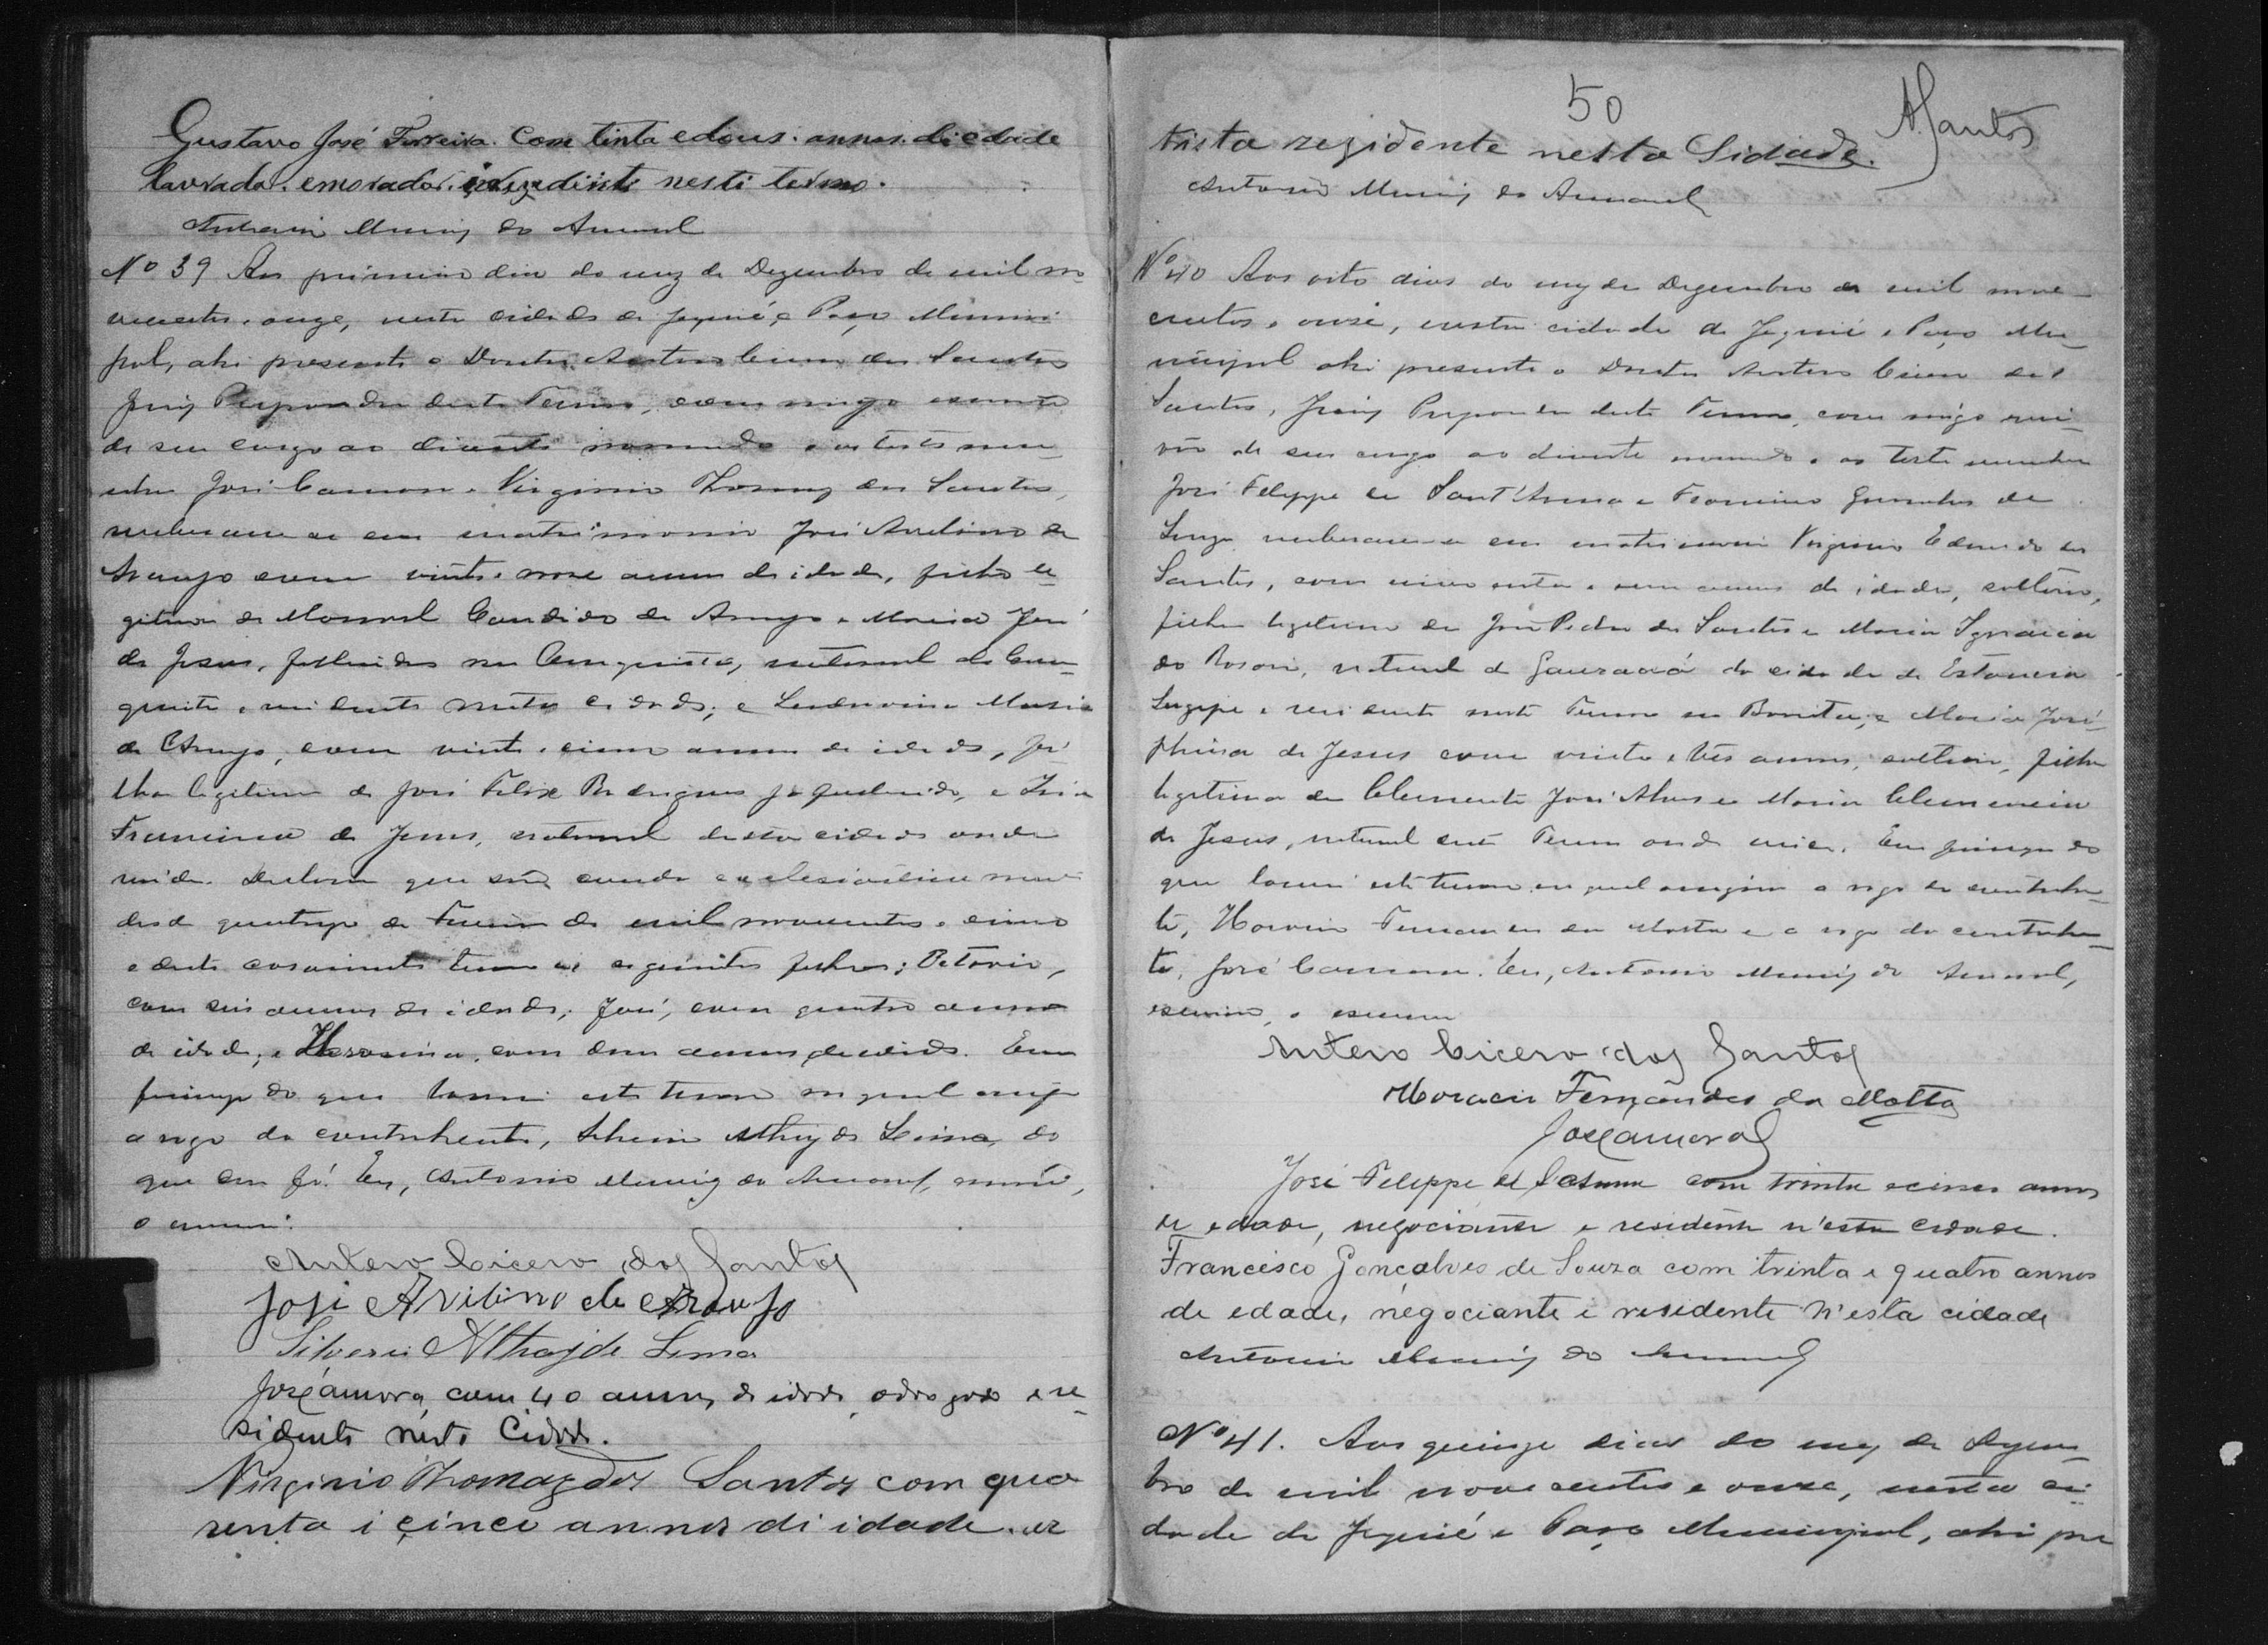 Gustavo José Ferreira. Com tinta edous. annos. di edade
lavrador. emorador. nesti termo.
Antonio Muniz do Amaral
Nº 39 Aos primeiro dia do mez de Dezembro de mil no-
vecentos e onze, nesta cidade de Jequié, e Paço Munici
pal, ahi presente o Doutor Antero Cicero dos Santos
Juiz Preparador deste Termo, commigo escrivão
de seu cargo ao diante nomeado e as teste mu-
nhas José Camora e Virginio Thomaz dos Santos,
receberam se em matrimonio José Avelino de
Araujo com vinte e nove annos de idade, filho le-
gitimo de Manoel Candido de Araujo e Maria José
de Jesus, fallecidos na Conquista, natural da Con-
quista e residente nesta cidade; e Maria
de Araujo, com vinte e cinco annos de idade, fi-
lha legitima de José Felix Rodrigues já fallecido, e
Francisca de Jesus, natural desta cidade onde
reside. Declaram que são casados ecclesiasticamente
desde quatorze de de mil novecentos e cinco
e deste casamento tem os seguintes filhos; Petronio,
com seis annos de idade; José, com quatro annos
de idade; e com dous annos de idade. Em
firmeza do que lavrei este termo no qual assigna
a rogo da contrahente, Silverio Athayde Lima, do
que dou fé. Eu, Antonio Muniz do Amaral, escrivão,
o escrevi.
Antero Cicero dos Santos
José Avilino de Araujo
Silverio Athayde Lima
José Camora, com 40 annos de idade, advogado e re-
sidente nesta Cidade.
Virginio Thomaz dos Santos com qua
renta i cinco annos di idade. ar
50
ASantos
tista rezidente nesta Sidade.
Antonio Muniz do Amaral
Nº 40 Aos oito dias do mez de Dezembro de mil nove-
centos e onze, nesta cidade de Jequié e Paço Mu-
nicipal ahi presente o Doutor Antero Cicero dos
Santos, Juiz Preparador deste Termo, commigo escri-
vão de seu cargo ao diante nomeado e as teste munhas
José Felippe de Sant'Anna e Francisco Gonçalves de
Souza receberam-se em matrimonio Virginio Eduardo dos
Santos, com cincoenta e um annos de idade, solteiro,
filho legitimo de José Pedro dos Santos e Maria Ignacia
do Rosario, natural de da cidade de Estancia
Sergipe e residente neste Termo na Bonita, e Maria José-
phina de Jesus com vinte e três annos, solteira, filha
legitima de Clemente José Alves e Maria Clemencia
de Jesus, natural deste Termo onde reside. Em firmeza do
que lavrei este termo no qual assigna a rogo do contrahen-
te, Horacio Fernandes da Motta e a rogo da contrahen-
te, José Camora. Eu, Antonio Muniz do Amaral,
escrivão, o escrevi
Antero Cicero dos Santos
Horacio Fernandes da Motta
José Camora
José Felippe de Sant'Anna com trinta e cinco annos
de edade, negociante e residente n'esta cidade.
Francisco Gonçalves de Souza com trinta e quatro annos
de edade, negociante e residente n'esta cidade
Antonio Muniz do Amaral
Nº 41. Aos quinze dias do mez de Dezem-
bro de mil novecentos e onze, nesta ci-
dade de Jequié e Paço Municipal, ahi pre